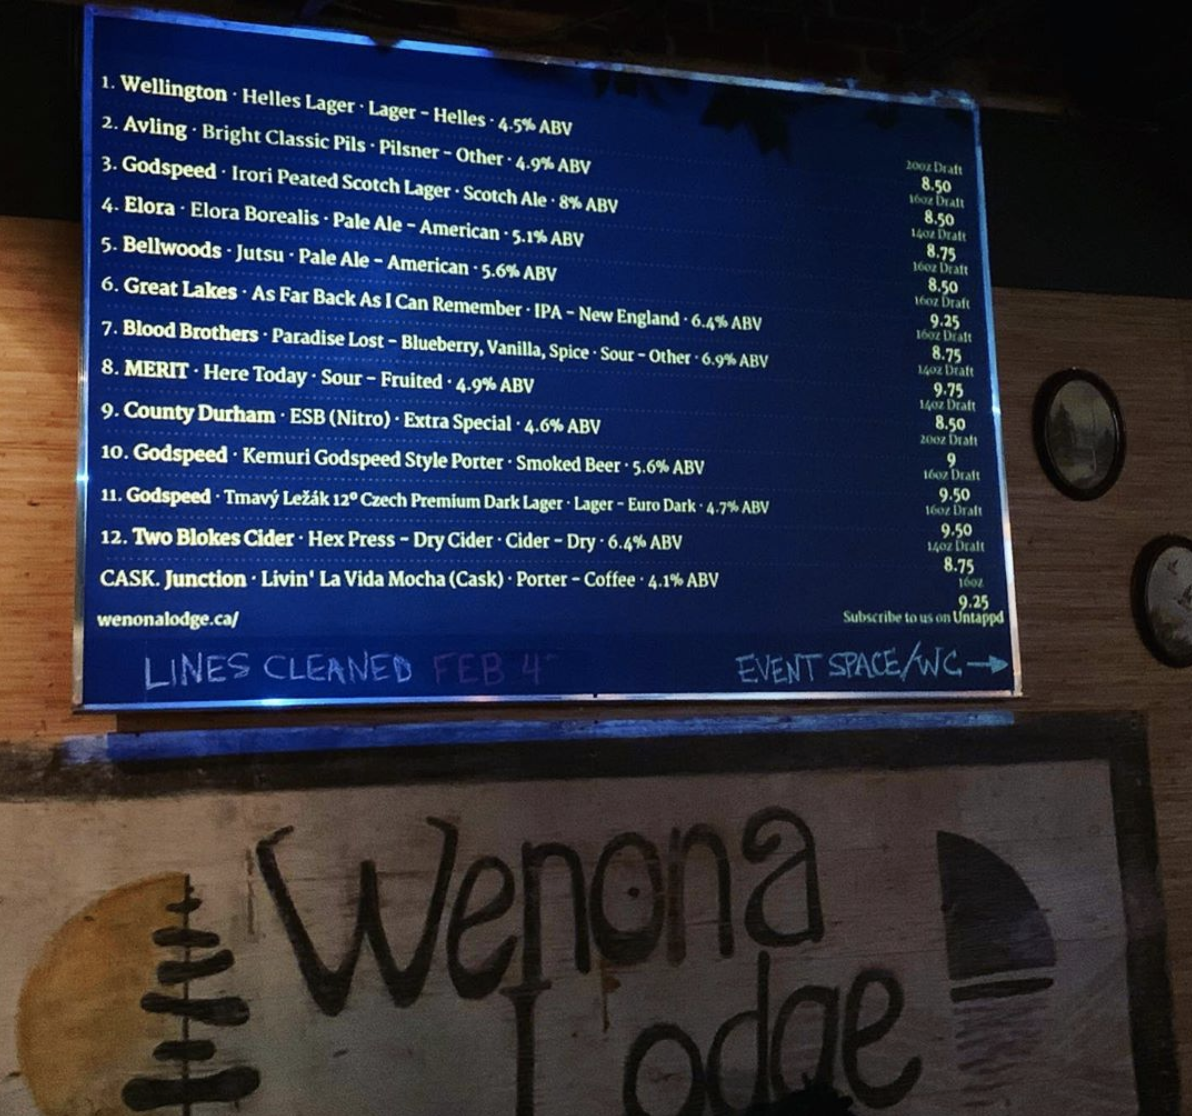 1. Wellington · Helles Lager · Lager - Helles · 4.5% ABV
20oz Draft
8.50
2. Avling · Bright Classic Pils · Pilsner - Other · 4.9% ABV
16oz Draft
8.50
3. Godspeed · Irori Peated Scotch Lager · Scotch Ale · 8% ABV
14oz Draft
8.75
4. Elora · Elora Borealis · Pale Ale - American · 5.1% ABV
16oz Draft
8.50
5. Bellwoods · Jutsu · Pale Ale - American · 5.6% ABV
16oz Draft
9.25
6. Great Lakes · As Far Back As I Can Remember · IPA - New England · 6.4% ABV
16oz Draft
8.75
7. Blood Brothers · Paradise Lost - Blueberry, Vanilla, Spice · Sour - Other · 6.9% ABV
14oz Draft
9.75
8. MERIT · Here Today · Sour - Fruited · 4.9% ABV
14oz Draft
8.50
9. County Durham · ESB (Nitro) · Extra Special · 4.6% ABV
20oz Draft
9
10. Godspeed · Kemuri Godspeed Style Porter · Smoked Beer · 5.6% ABV
16oz Draft
9.50
11. Godspeed · Tmavý Ležák 12º Czech Premium Dark Lager · Lager - Euro Dark · 4.7% ABV
16oz Draft
9.50
12. Two Blokes Cider · Hex Press - Dry Cider · Cider - Dry · 6.4% ABV
14oz Draft
8.75
CASK. Junction · Livin' La Vida Mocha (Cask) · Porter - Coffee · 4.1% ABV
16oz
9.25
wenonalodge.ca/
Subscribe to us on Untappd
LINES CLEANED FEB 4
EVENT SPACE/WC →
Wenona
Lodge